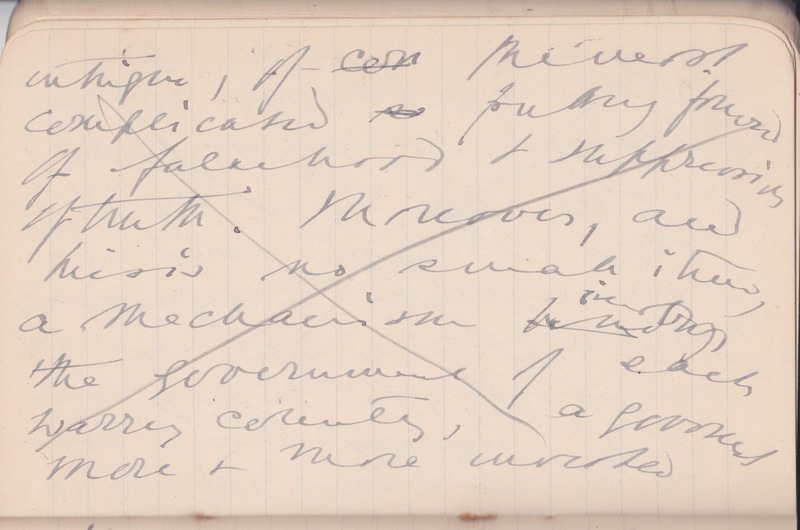 intrigue, of con the most
complicated so putting forward
of falsehood & suppression
of truth. Moreover, and
this is no small item,
a mechanism involving
the government of each
warring country, a
more & more involved